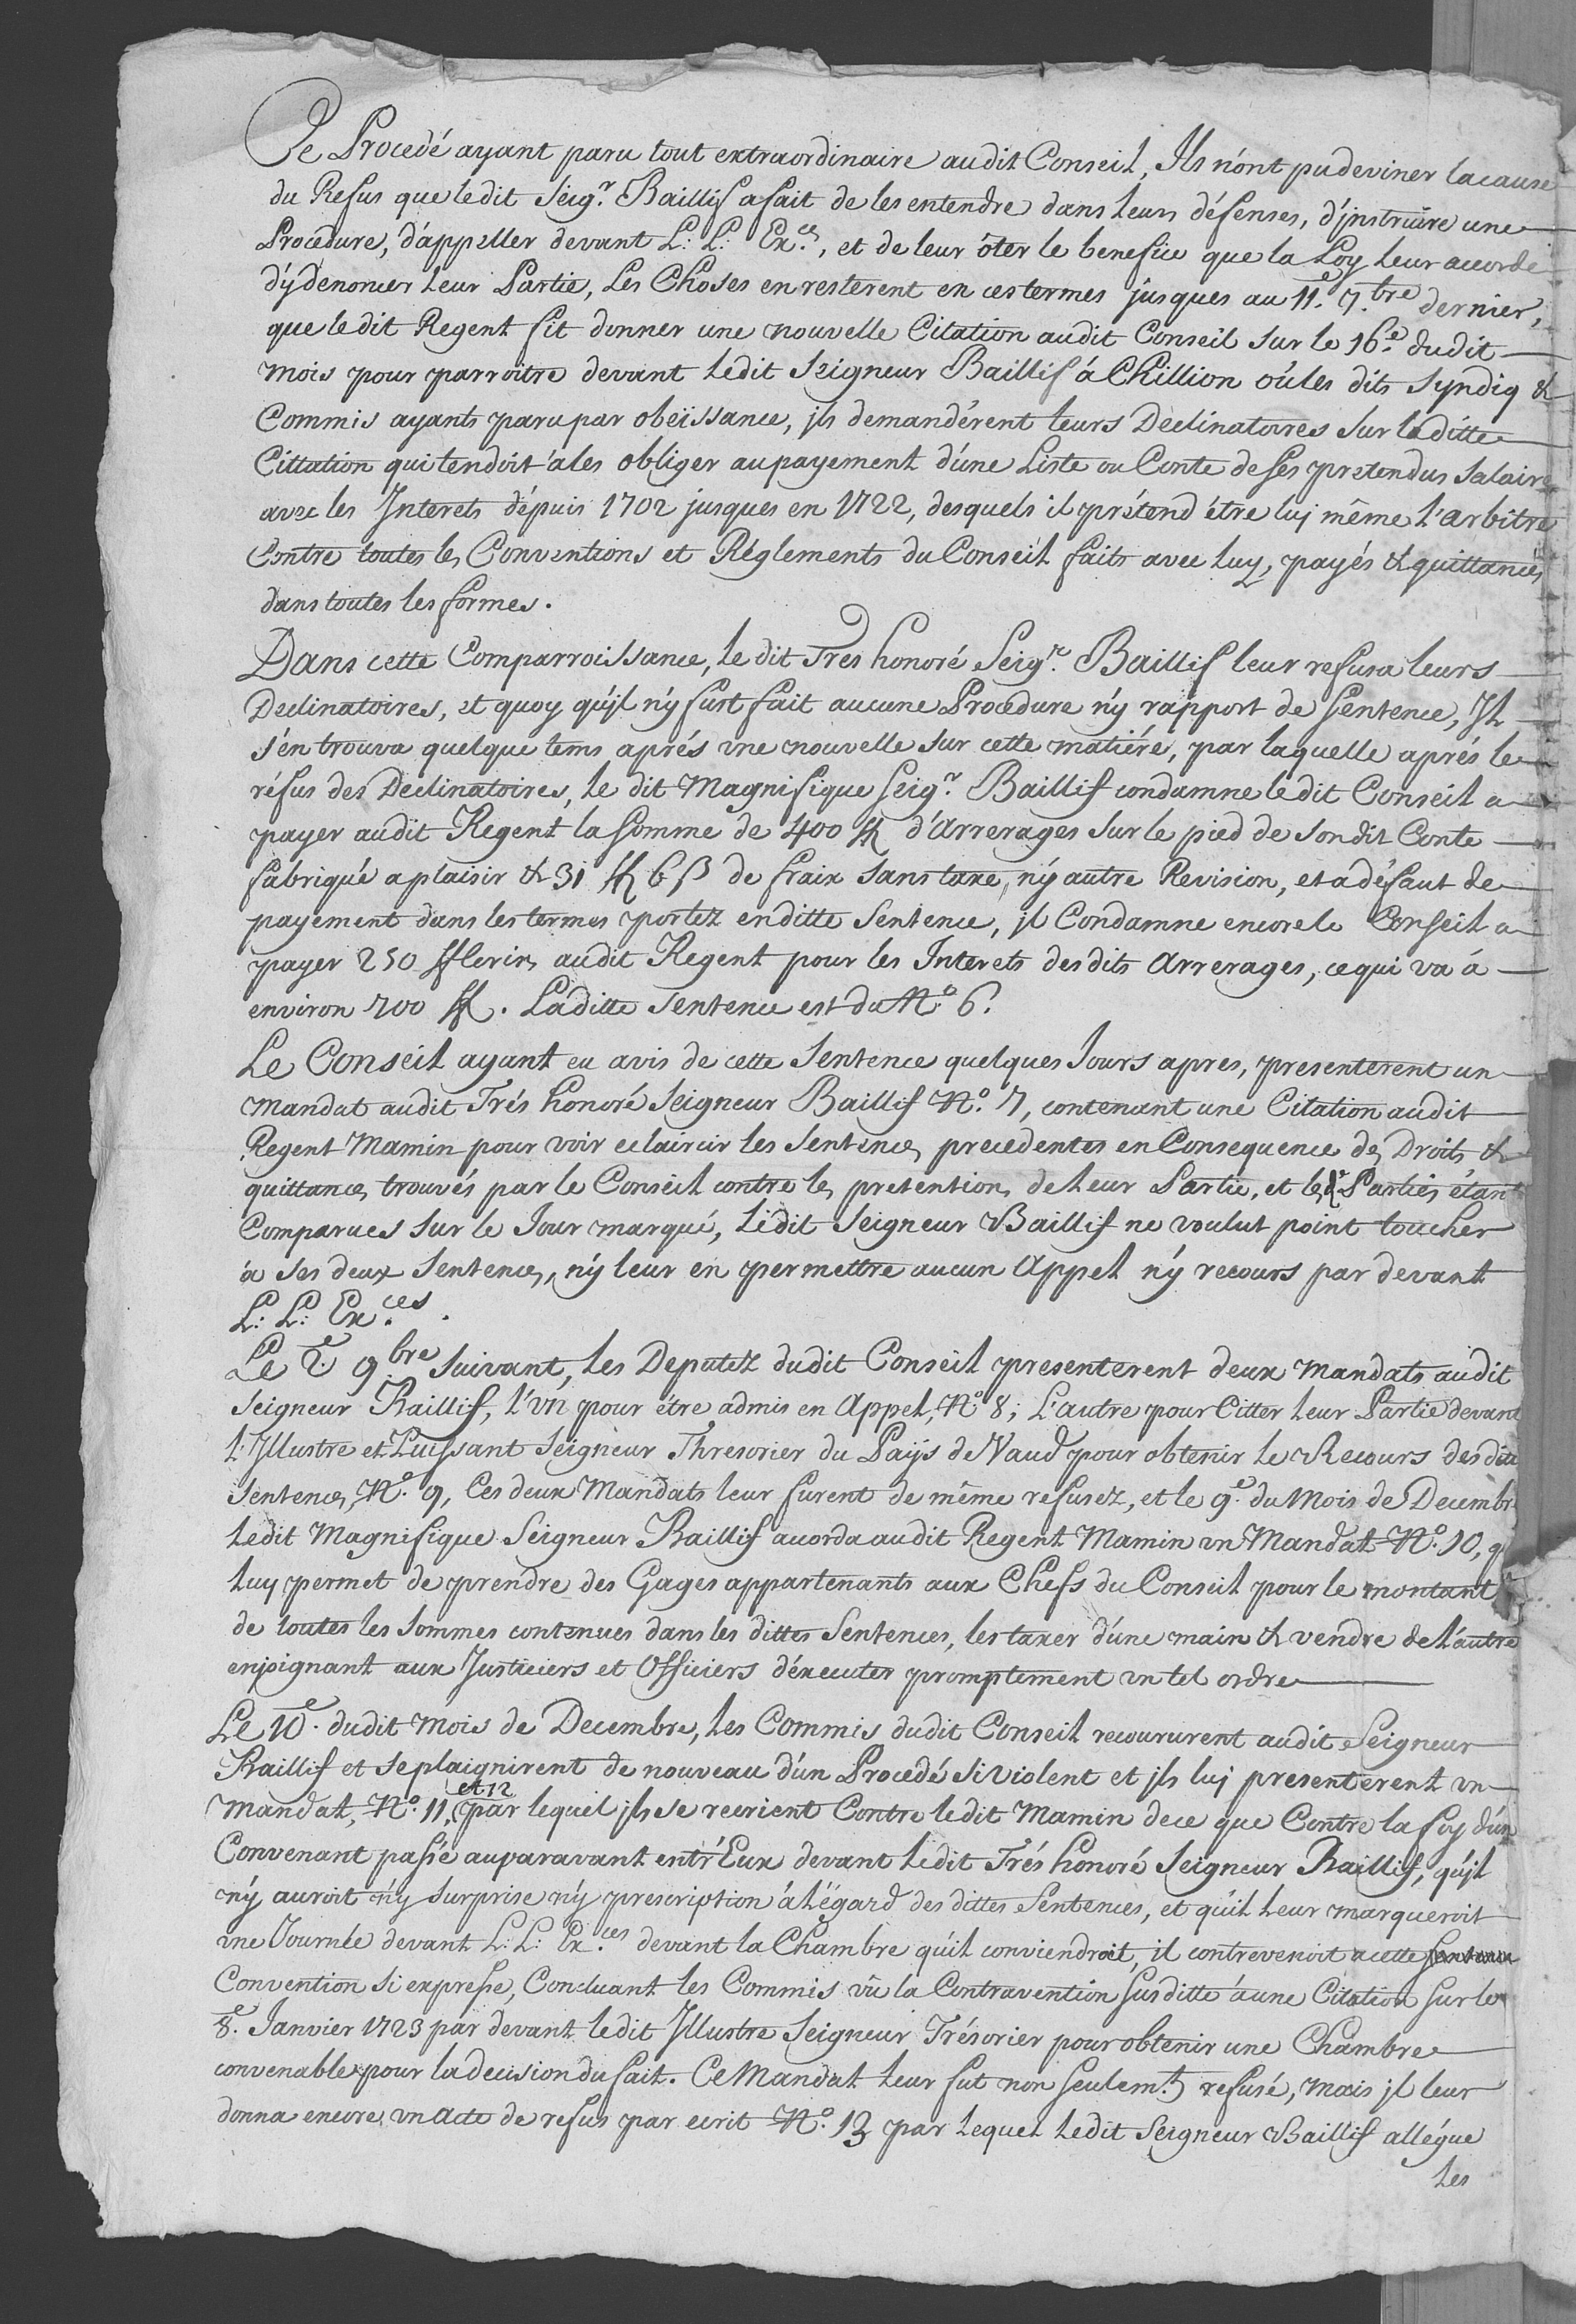 Ce Procedé ayant paru tout extraordinaire audit Conseil, Ils n'ont pu deviner la cause
du Refus que ledit Seig.r Baillif a fait de les entendre dans leurs défenses, d'jnstruire une
Procedure, d'appeller devant L: L: Ex.ces, et de leur ôter le benefice que la Loy leur accorde
d'y dénoncer leur Partie, Les Choses en resterent en ces termes jusques au 11.e 7.bre dernier,
que le dit Regent fit donner une nouvelle Citation audit Conseil sur le 16.e dudit
mois pour parroitre devant ledit Seigneur Baillif á Chillion où les dits Syndiq &
Commis ayants paru par obeïssance, jls demandérent leurs Declinatoires sur laditte
Cittation qui tendoit á les obliger au payement d'une Liste ou Conte de ses pretendus Salaire
avec les Interets dépuis 1702 jusques en 1722, desquels il prétend étre luj même l'arbitre
Contre toutes les Conventions et Réglements du Conseil faits avec luy, payés & quittancés
dans toutes les formes.
Dans cette Comparroissance, le dit Tres honoré Seig.r Baillif leur refusa leurs
Declinatoires, et quoy qu'jl n'y fust fait aucune Procedure n'y rapport de Sentence, Il
s'en trouva quelque tems aprés une nouvelle sur cette matiére, par laquelle aprés le
réfus des Declinatoires, le dit Magnifique Seig.r Baillif condamne le dit Conseil a
payer audit Regent la somme de 400 ff d'Arrerages sur le pied de sondit Conte
fabriqué a plaisir & 31 ff 6 ß de fraix sans taxe, n'y autre Revision, et a défaut de
payement dans les termes portez en ditte Sentence, jl Condamne encore le Conseil a
payer 250 fflorins audit Regent pour les Interets desdits Arrerages, ce qui va á
environ 700 ff. Laditte Sentence est du N.o 6.
Le Conseil ayant eu avis de cette Sentence quelques Jours apres, presenterent un
mandat audit Trés honoré Seigneur Baillif N.o 7, contenant une Citation audit
Regent Mamin pour voir eclaircir les Sentences precedentes en Consequence des Droits &
quittances trouvés par le Conseil contre les pretentions de leur Partie, et les Parties étant
Comparues sur le Jour marqué, ledit Seigneur Baillif ne voulut point toucher
à ses deux Sentences, n'y leur en permettre aucun Appel n'y recours par devant
L: L: Ex.ces.
Le 2.e 9.bre suivant, les Deputez dudit Conseil presenterent deux mandats audit
Seigneur Baillif, l'un pour étre admis en Appel, N.o 8; L'autre pour Citter leur Partie devant
l'Jllustre et Puissant Seigneur Thresorier du Païs de Vaud pour obtenir le Recours desdites
Sentences, N.o 9, Ces deux Mandats leur furent de même refusez, et le 9.e du Mois de Decembre
ledit Magnifique Seigneur Baillif acorda audit Regent Mamin un Mandat N.o 10, q
luy permet de prendre des Gages appartenants aux Chefs du Conseil pour le montant
de toutes les sommes contenues dans les dittes Sentences, les taxer d'une main & vendre de l'autre
enjoignant aux Justiciers et Officiers d'éxecuter promptement un tel ordre
Le 10.e dudit mois de Decembre, les Commis dudit Conseil recoururent audit Seigneur
Baillif et se plaignirent de nouveau d'un Procedé si violent et jls luj presenterent un
mandat, N.o 11, et 12 par lequel jls se recrient Contre ledit Mamin de ce que Contre la foy d'un
Convenant passé auparavant entr'Eux devant ledit Trés honoré Seigneur Baillif, qu'jl
n'y auroit n'y surprise n'y prescription á l'égard des dittes Sentences, et qu'il leur marqueroit
une Journée devant L: L: Ex.ces devant la Chambre qu'il conviendroit, il contrevenoit a cette
Convention si expresse, Concluant les Commis vû la Contravention susditte á une Citation sur le
8.e Janvier 1723 par devant ledit Jllustre Seigneur Trésorier pour obtenir une Chambre
convenable pour la decision du fait. Ce Mandat leur fut non seulem.t refusé, mais jl leur
donna encore un acte de refus par ecrit N.o 13 par lequel ledit Seigneur Baillif allégue
les